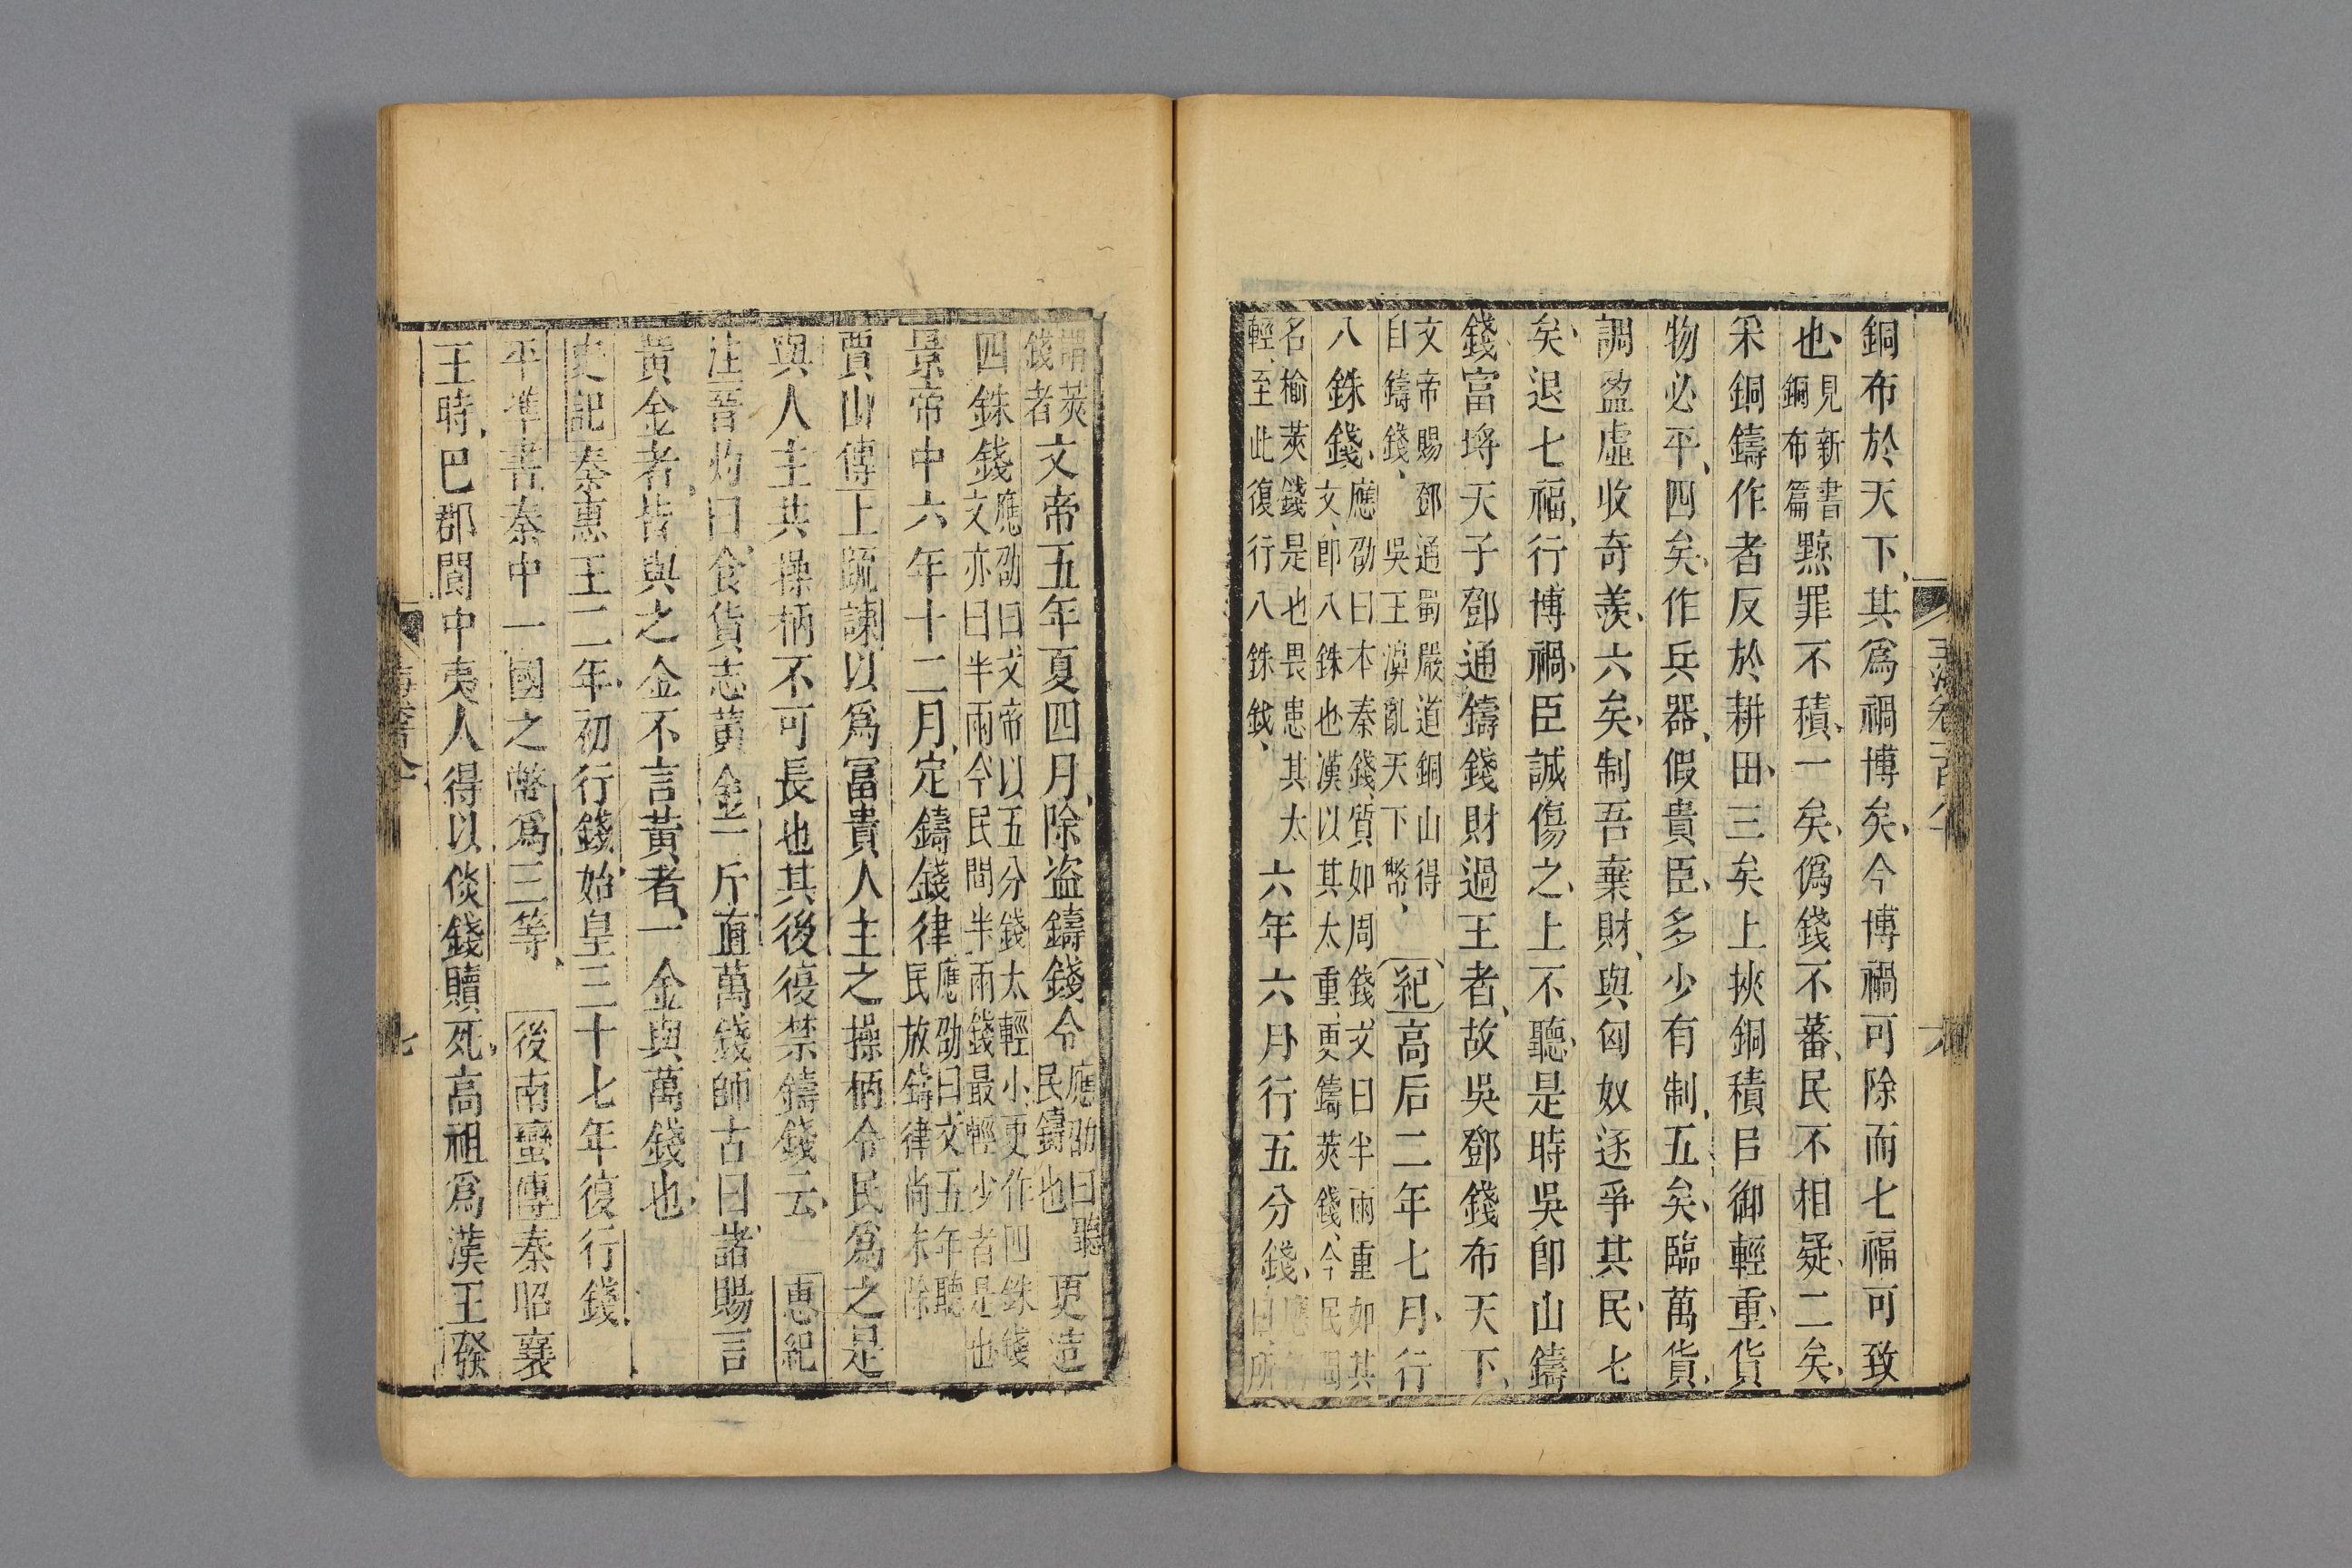 銅布於天下、其爲禍博矣、今博禍可除而七福可致
也、見新書銅布篇黥罪不積、一矣、僞錢不蕃、民不相疑、二矣、
采銅鑄作者反於耕田、三矣上挾銅積㠯御輕重、貨
物必平、四矣、作兵器、假貴臣、多少有制、五矣、臨萬貨、
調盈虛收奇羨、六矣、制吾棄財、與匈奴逐爭其民、七
矣、退七福、行博禍、臣誠傷之、上不聽、是時吳卽山鑄
錢、富埒天子鄧通鑄錢財過王者、故吳鄧錢布天下、
文帝賜鄧通蜀嚴道銅山得自鑄錢、吳王濞亂天下幣、紀高后二年七月、行
八銖錢、應劭曰本秦錢、質如周錢、文曰半兩重如其文、卽八銖也漢以其太重、更鑄莢錢、今民間
名榆莢錢是也畏患其太輕、至此復行八銖錢、六年六月行五分錢、應所
謂莢錢者文帝五年夏四月、除盜鑄錢令應劭曰聽民鑄也更造
四銖錢應劭曰文帝以五分錢太輕小更作四銖錢文亦曰半兩今民間半兩錢最輕少者是也
景帝中六年十二月、定鑄錢律應劭曰文五年聽民放鑄律尚未除
賈山傳上疏諫以爲富貴人主之操柄令民爲之是
與人主共操柄不可長也其後復禁鑄錢云、惠紀
注晉灼曰、食貨志黃金一斤直萬錢師古曰諸賜言
黃金者、皆與之金不言黃者、一金與萬錢也、
史記秦惠王二年、初行錢、始皇三十七年復行錢、
平準書秦中一國之幣爲三等、後南蠻傳秦昭襄
王時、巴郡閬中夷人得以倓錢贖死、高祖爲漢王發
七